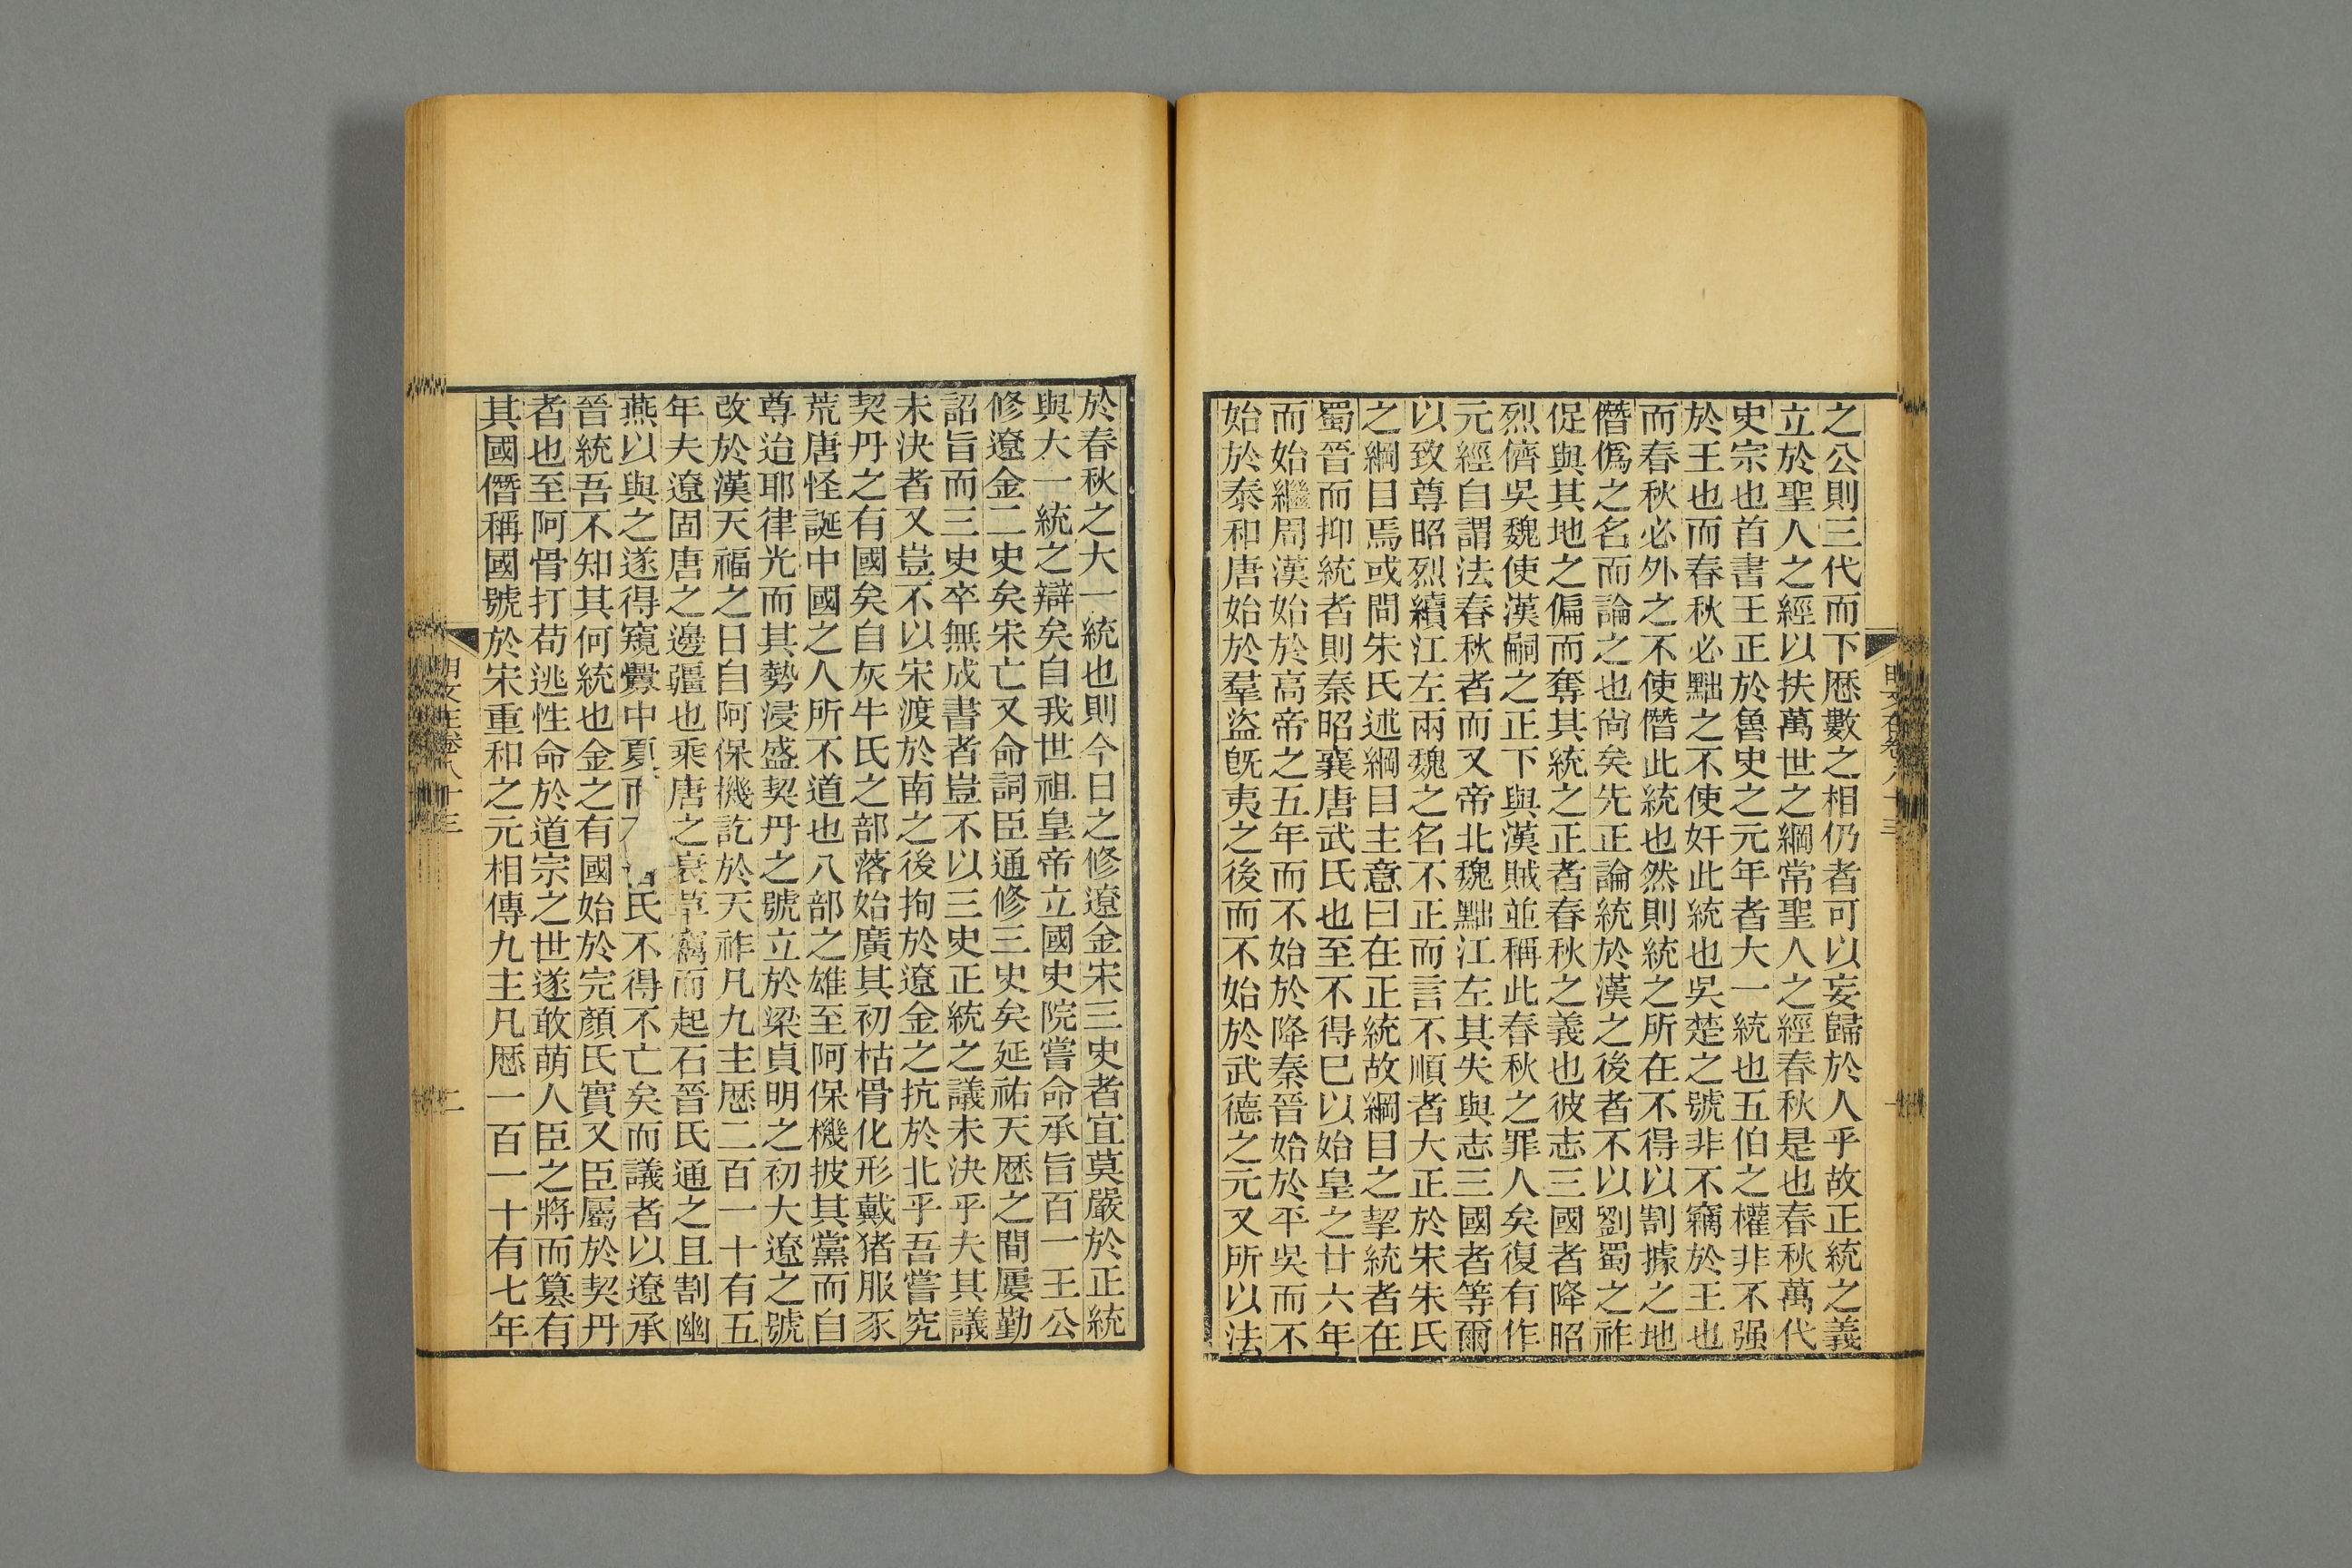 之公則三代而下厯數之相仍者可以妄歸於人乎故正統之義
立於聖人之經以扶萬世之綱常聖人之經春秋是也春秋萬代
史宗也首書王正於魯史之元年者大一統也五伯之權非不强
於王也而春秋必黜之不使奸此統也吳楚之號非不竊於王也
而春秋必外之不使僭此統也然則統之所在不得以割據之地
僭僞之名而論之也尙矣先正論統於漢之後者不以劉蜀之祚
促與其地之偏而奪其統之正者春秋之義也彼志三國者降昭
烈儕吳魏使漢嗣之正下與漢賊並稱此春秋之罪人矣復有作
元經自謂法春秋者而又帝北魏黜江左其失與志三國者等爾
以致尊昭烈續江左兩魏之名不正而言不順者大正於宋朱氏
之綱目焉或問朱氏述綱目主意曰在正統故綱目之挈統者在
蜀晉而抑統者則秦昭襄唐武氏也至不得巳以始皇之廿六年
而始繼周漢始於高帝之五年而不始於降秦晉始於平吳而不
始於泰和唐始於羣盜旣夷之後而不始於武德之元又所以法
於春秋之大一統也則今日之修遼金宋三史者宜莫嚴於正統
與大一統之辯矣自我世祖皇帝立國史院嘗命承旨百一王公
修遼金二史矣宋亡又命詞臣通修三史矣延祐天厯之間屢勤
詔旨而三史卒無成書者豈不以三史正統之議未決乎夫其議
未決者又豈不以宋渡於南之後拘於遼金之抗於北乎吾嘗究
契丹之有國矣自灰牛氏之部落始廣其初枯骨化形戴猪服豕
荒唐怪誕中國之人所不道也八部之雄至阿保機披其黨而自
尊迨耶律光而其勢浸盛契丹之號立於梁貞明之初大遼之號
改於漢天福之日自阿保機訖於天祚凡九主厯二百一十有五
年夫遼固唐之邊疆也乘唐之衰草竊而起石晉氏通之且割幽
燕以與之遂得窺釁中夏而氏不得不亡矣而議者以遼承
晉統吾不知其何統也金之有國始於完顏氏實又臣屬於契丹
者也至阿骨打苟逃性命於道宗之世遂敢萌人臣之將而簒有
其國僭稱國號於宋重和之元相傳九主凡厯一百一十有七年
明文在卷八十三
二